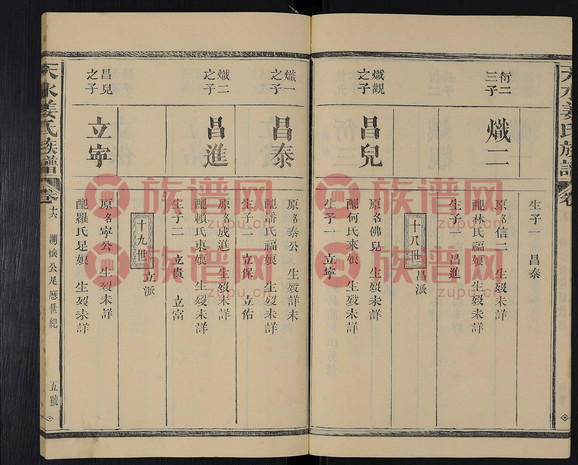 天水姜氏族譜
衍二
三子
熾二
原名信二 生歿未詳
配林氏福娘 生歿未詳
生子一 昌進
生子一 昌泰
十八世
昌派
熾觀
之子
昌兒
原名佛兒 生歿未詳
配何氏來娘 生歿未詳
生子一 立寧
熾一
之子
昌泰
原名泰公 生歿未詳
配潘氏福娘 生歿未詳
生子二 立保 立佑
熾二
之子
昌進
原名成進 生歿未詳
配賴氏東娘 生歿未詳
生子二 立貴 立富
十九世
立派
昌兒
之子
立寧
原名寧公 生歿未詳
配羅氏足娘 生歿未詳
天水姜氏族譜
卷
公
歷世紀
五號
族谱网
zupu.cn